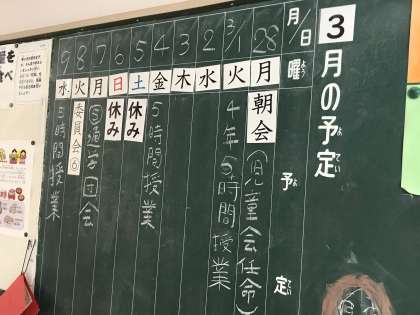 3月の予定
よてい
月/日
曜
よう
予定
よてい
28 月 朝会(児童会任命)
3/1 火 4年⑤時間授業
2 水
3 木
4 金 5時間授業
5 土 休み
6 日 休み
7 月 ⑤通学団会
8 火 委員会⑥
9 水 5時間授業
を
べ